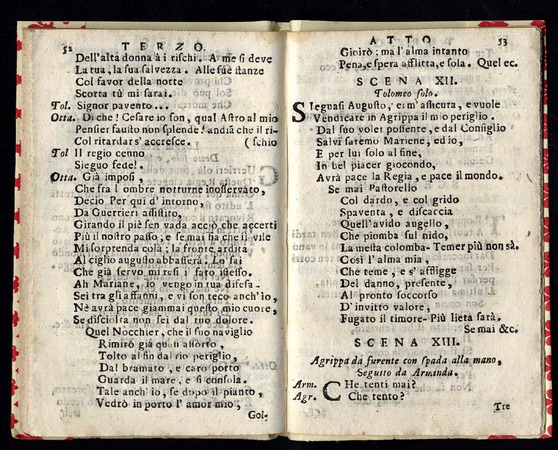 52 TERZO.
Dell'alta donna à i rischi. A me si deve
La tua, la sua salvezza. Alle sue stanze
Col favor della notte
Scorta tù mi sarai.
Tol. Signor pavento...
Otta. Di che! Cesare io son, qual Astro al mio
Pensier fausto non splende! andià che il ri-
Col ritardar s'accresce. (schio
Tol Il regio cenno
Sieguo fedel.
Otta. Già imposi,
Che fra l'ombre notturne inosservato,
Decio Per qui d'intorno,
Da Guerrieri assistito,
Girando il piè sen vada acciò che accerti
Più il nostro passo; e se mai sia che il vile
Mi sorprenda colà; la fronte ardita
Al ciglio augusto abbasserà. Lo sai
Che già servo mi resi il fato istesso.
Ah Mariane, io vengo in tua difesa.
Sei tra gli affanni, e vi son teco anch'io,
Ne avrà pace giammai questo mio cuore,
Se disciolta non sei dal tuo dolore.
Quel Nocchier, che il suo naviglio
Rimirò già quasi assorto,
Tolto al fin dal rio periglio,
Dal bramato, e caro porto
Guarda il mare, e si consola.
Tale anch'io, se dopo il pianto,
Vedrò in porto l'amor mio,
Goi-
ATTO 53
Gioirò: ma l'alma intanto
Pena, e spera afflitta, e sola. Quel ec.
SCENA XII.
Tolomeo solo.
SIegunsi Augusto, ei m'assicura, e vuole
Vendicare in Agrippa il mio periglio.
Dal suo voler possente, e dal Consiglio
Salvi faremo Mariene, ed io,
E per lui solo al fine,
In bel piacer giocondo,
Avrà pace la Regia, e pace il mondo.
Se mai Pastorello
Col dardo, e col grido
Spaventa, e discaccia
Quell'avido augello,
Che piomba sul nido,
La mesta colomba- Temer più non sà.
Così l'alma mia,
Che teme, e s'affligge
Del danno, presente,
Al pronto soccorso
D'invitto valore,
Fugato il timore- Più lieta sarà.
Se mai &c.
SCENA XIII.
Agrippa da furente con spada alla mano,
Seguito da Arminda.
Arm. CHe tenti mai?
Agr. Che tento?
Tre